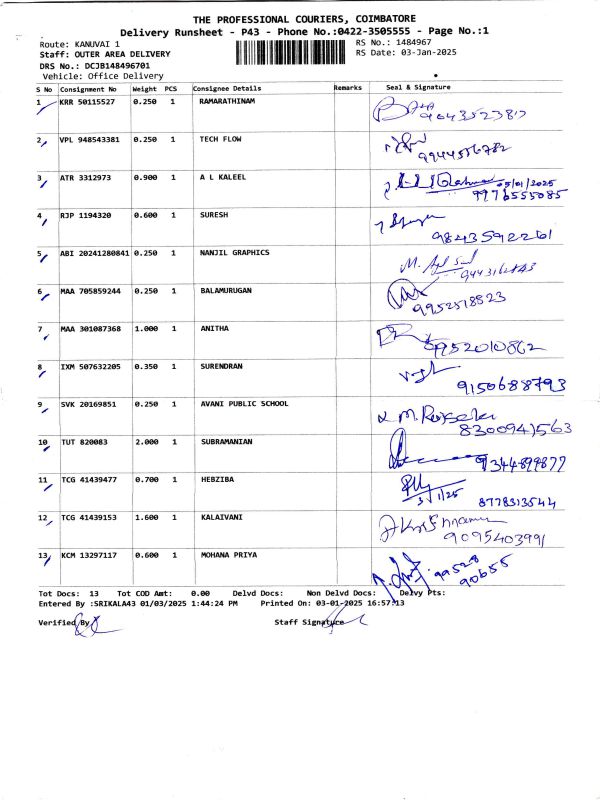 THE PROFESSIONAL COURIERS, COIMBATORE
Delivery Runsheet - P43 - Phone No.:0422-3505555 - Page No.:1
Route: KANUVAI 1 RS No.: 1484967
Staff: OUTER AREA DELIVERY RS Date: 03-Jan-2025
DRS No.: DCJB148496701
Vehicle: Office Delivery
S No Consignment No Weight PCS Consignee Details Remarks Seal & Signature
1 KRR 50115527 0.250 1 RAMARATHINAM
2 VPL 948543381 0.250 1 TECH FLOW 9944556782
3 ATR 3312973 0.900 1 A L KALEEL 05/01/2025
9976555085
4 RJP 1194320 0.600 1 SURESH
9843592261
5 ABI 20241280841 0.250 1 NANJIL GRAPHICS
6 MAA 705859244 0.250 1 BALAMURUGAN
9952518523
7 MAA 301087368 1.000 1 ANITHA
9952010862
8 IXM 507632205 0.350 1 SURENDRAN
9150688793
9 SVK 20169851 0.250 1 AVANI PUBLIC SCHOOL
8300941563
10 TUT 820083 2.000 1 SUBRAMANIAN
9344899877
11 TCG 41439477 0.700 1 HEBZIBA
3/1/25 8778313544
12 TCG 41439153 1.600 1 KALAIVANI
9095403991
13 KCM 13297117 0.600 1 MOHANA PRIYA 99528
90655
Tot Docs: 13 Tot COD Amt: 0.00 Delvd Docs: Non Delvd Docs: Delvy Pts:
Entered By :SRIKALA43 01/03/2025 1:44:24 PM Printed On: 03-01-2025 16:57:13
Verified By Staff Signature